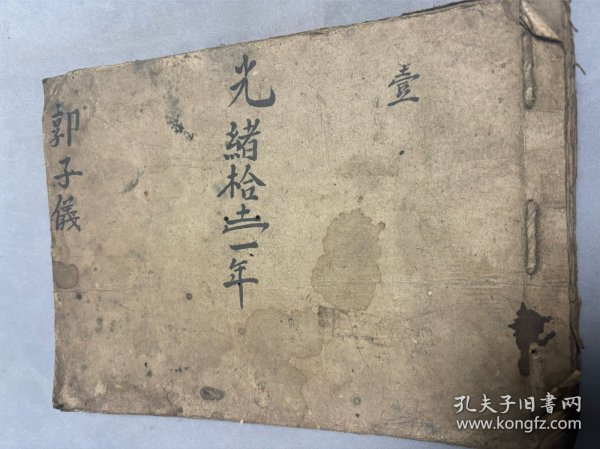 壹
光緒拾一年
郭子儀
孔夫子旧書网
www.kongfz.com